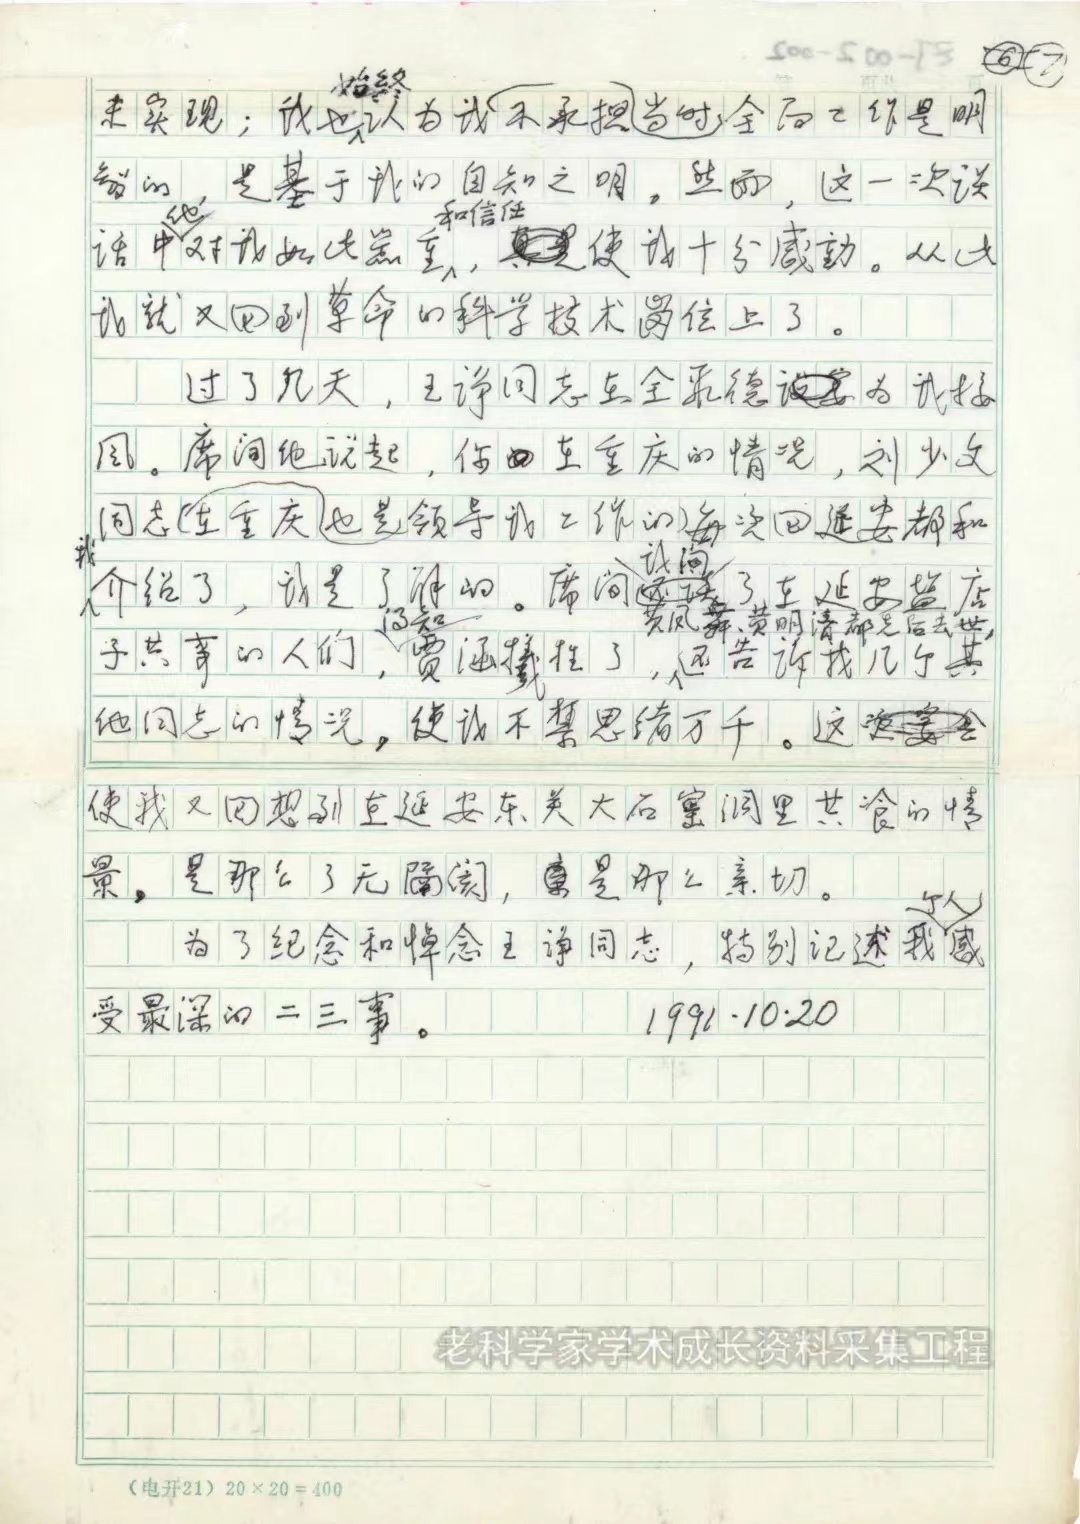 ⑥ ⑦
未实现；我也始终认为我不承担当时全局工作是明
智的，是基于我的自知之明。然而，这一次谈
话中他对我如此器重和信任，使我十分感动。从此
我就又回到革命的科学技术岗位上了。
过了几天，王诤同志在全聚德设宴为我接
风。席间他说起，你在重庆的情况，刘少文
同志(在重庆也是领导我工作的)每次回延安都和
我介绍了，我是了解的。席间我询了在延安盐店
子共事的人们，得知贾涵牺牲了，黄凤舞、黄明清都先后去世，还告诉我几个其
他同志的情况，使我不禁思绪万千。这
使我又回想到在延安东关大石窑洞里共飡的情
景，是那么了无隔阂，是那么亲切。
为了纪念和悼念王诤同志，特别记述我个人感
受最深的二三事。 1991.10.20
老科学家学术成长资料采集工程
(电开21) 20×20=400